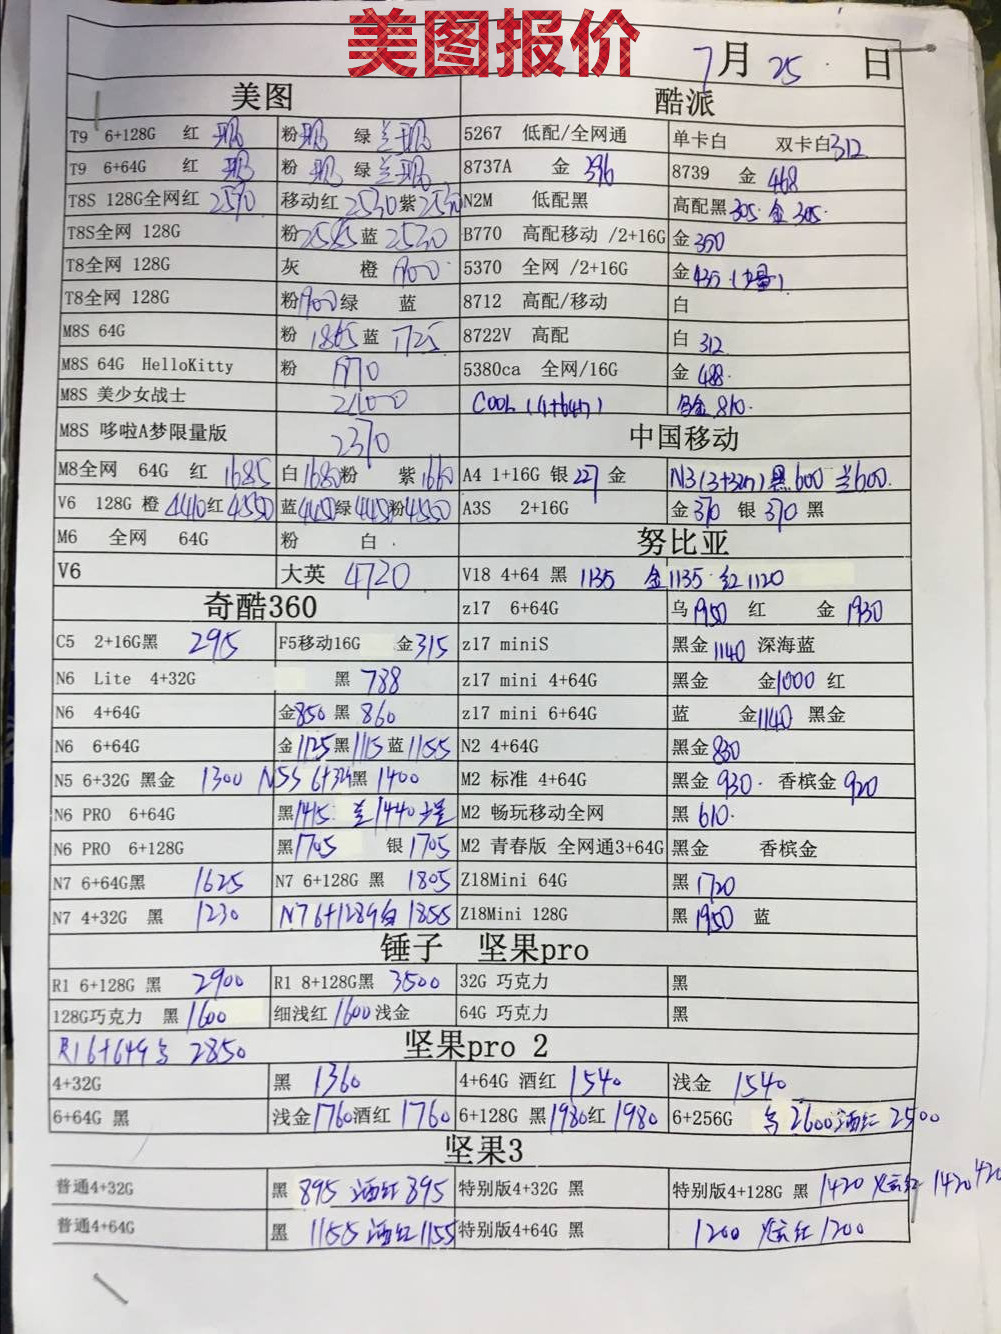 美图报价
7月 25 日
美图 酷派
T9 6+128G 红 现 粉 现 绿 兰现 5267 低配/全网通 单卡白 双卡白312
T9 6+64G 红 现 粉 现 绿 兰现 8737A 金 396 8739 金 468
T8S 128G全网红 2570 移动红 2530 紫 2530 N2M 低配黑 高配黑 305 金 305
T8S全网 128G 粉 2585 蓝 2530 B770 高配移动 /2+16G 金 350
T8全网 128G 灰 橙 1900 5370 全网 /2+16G 金 435 (少量)
T8全网 128G 粉 1900 绿 蓝 8712 高配/移动 白
M8S 64G 粉 1865 蓝 1725 8722V 高配 白 312
M8S 64G HelloKitty 粉 1970 5380ca 全网/16G 金 488
M8S 美少女战士 2100 COOL (4+64G) 金 810
M8S 哆啦A梦限量版 2370 中国移动
M8全网 64G 红 1685 白 1680 粉 紫 1660 A4 1+16G 银 227 金 N3 (3+32G) 黑 600 兰 600
V6 128G 橙 4410 红 4550 蓝 4450 绿 4450 粉 4550 A3S 2+16G 金 370 银 370 黑
M6 全网 64G 粉 白 努比亚
V6 大英 4720 V18 4+64 黑 1135 金 1135 红 1120
奇酷360 z17 6+64G 乌 1950 红 金 1930
C5 2+16G黑 295 F5移动16G 金 315 z17 miniS 黑金 1140 深海蓝
N6 Lite 4+32G 黑 788 z17 mini 4+64G 黑金 金 1000 红
N6 4+64G 金 850 黑 860 z17 mini 6+64G 蓝 金 1140 黑金
N6 6+64G 金 1125 黑 1115 蓝 1155 N2 4+64G 黑金 830
N5 6+32G 黑金 1300 N5S 6+32G黑 1400 M2 标准 4+64G 黑金 930 香槟金 920
N6 PRO 6+64G 黑 1415 兰 1440 少量 M2 畅玩移动全网 黑 610
N6 PRO 6+128G 黑 1705 银 1705 M2 青春版 全网通3+64G 黑金 香槟金
N7 6+64G黑 1625 N7 6+128G 黑 1805 Z18Mini 64G 黑 1720
N7 4+32G 黑 1230 N7 6+128G白 1855 Z18Mini 128G 黑 1950 蓝
锤子 坚果pro
R1 6+128G 黑 2900 R1 8+128G黑 3500 32G 巧克力 黑
128G巧克力 黑 1600 细浅红 1600 浅金 64G 巧克力 黑
R1 6+64G 2850 坚果pro 2
4+32G 黑 1360 4+64G 酒红 1540 浅金 1540
6+64G 黑 浅金 1760 酒红 1760 6+128G 黑 1980 红 1980 6+256G 2600 酒红 2500
坚果3
普通4+32G 黑 895 酒红 895 特别版4+32G 黑 特别版4+128G 黑 1420 炫红 1420 420
普通4+64G 黑 1155 酒红 1155 特别版4+64G 黑 1200 炫红 1200